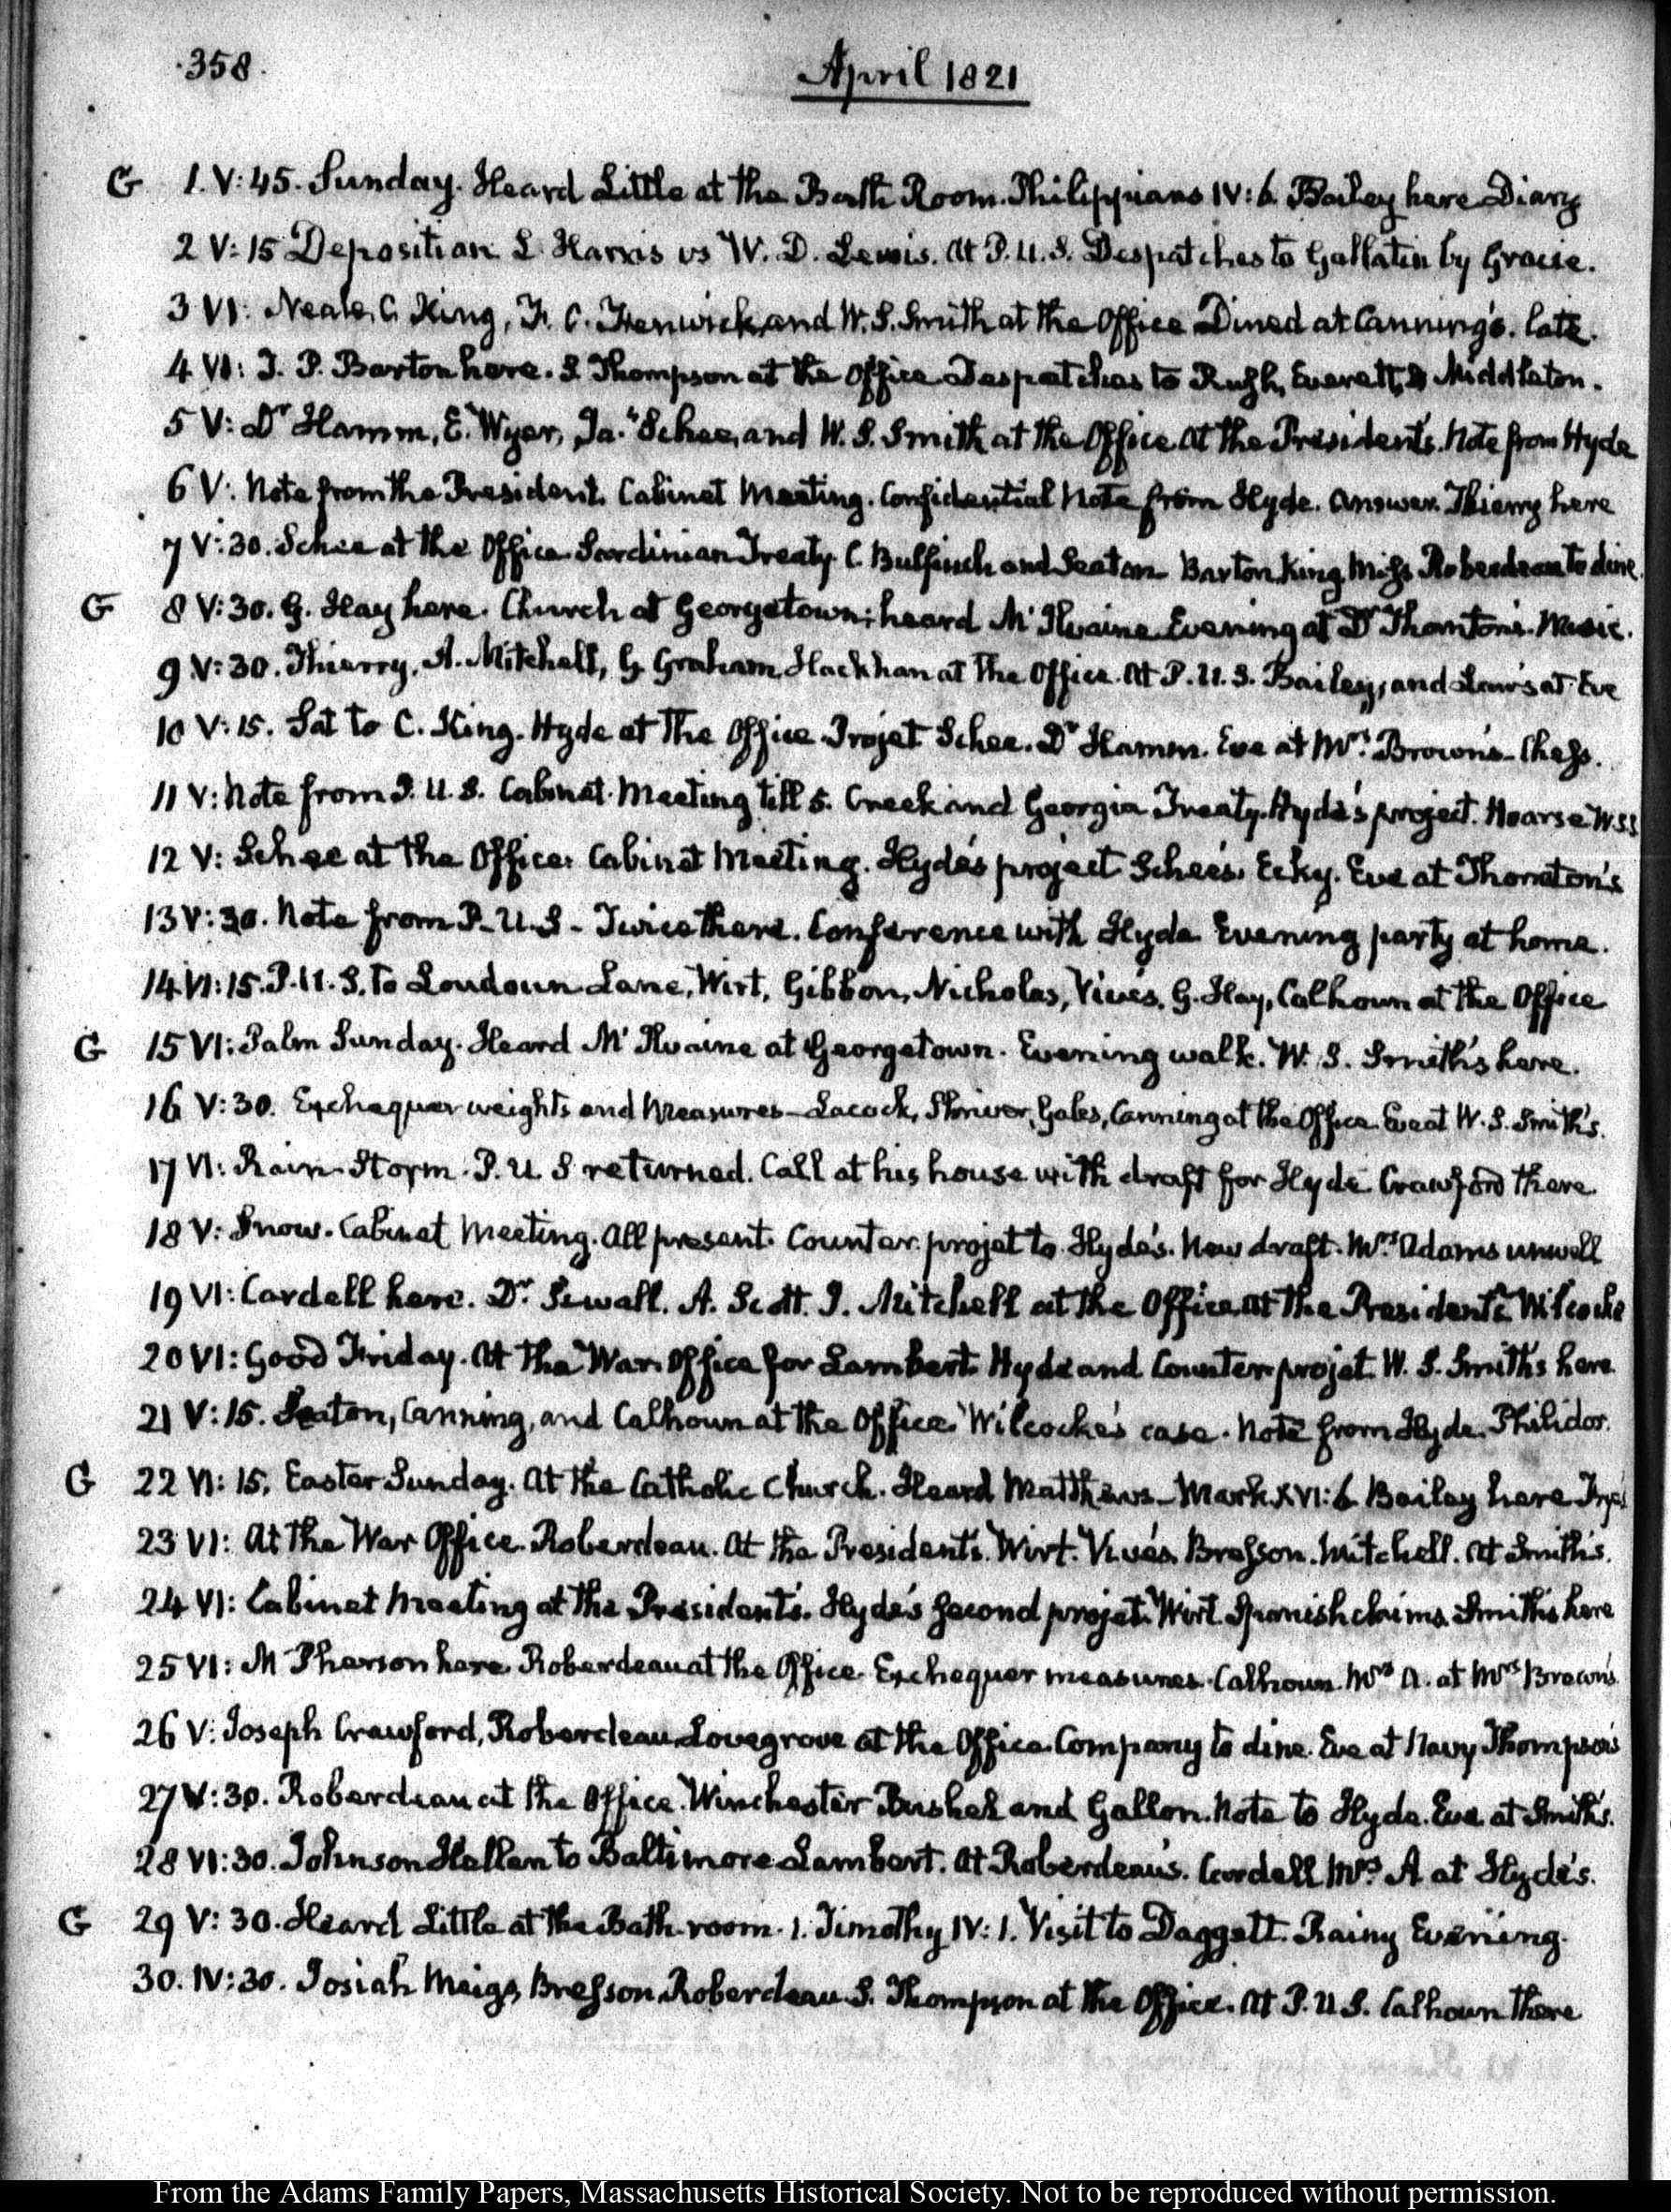 358.
April 1821
G 1. V:45. Sunday. Heard Little at the Bath Room. Philippians IV:6. Bailey here Diary
2 V:15 Deposition L. Harris vs W. D. Lewis. At P.U.S. Despatches to Gallatin by Gracie.
3 VI: Neale, C. King, F. C. Fenwick, and W. S. Smith at the Office Dined at Canning's. late.
4 VI: T. P. Barton here. S. Thompson at the Office Despatches to Rush, Everett, Middleton.
5 V: Dr Hamm, E. Wyer, Jas Schee, and W. S. Smith at the Office At the President's. Note from Hyde
6 V: Note from the President. Cabinet Meeting. Confidential Note from Hyde. Answer. Thierry here
7 V:30. Schee at the Office. Sardinian Treaty. C. Bulfinch and Seaton. Barton, King, Miss Roberdeau to dine.
G 8 V:30. G. Hay here. Church at Georgetown; heard McIlvaine. Evening at Dr Thornton's. Music.
9 V:30. Thierry, A. Mitchell, G. Graham, at the Office. At P.U.S. Bailey, and Law's at Eve
10 V:15. Sat to C. King. Hyde at the Office. Projet Schee. Dr Hamm. Eve at Mrs Brown's. Chess.
11 V: Note from P.U.S. Cabinet Meeting till 5. Creek and Georgia Treaty. Hyde's project. Hoarse W.S.S
12 V: Schee at the Office. Cabinet Meeting. Hyde's project Schee's. Ecky. Eve at Thornton's
13 V:30. Note from P.U.S. Twice there. Conference with Hyde. Evening party at home.
14 VI:15. P.U.S. to Loudoun Lane, Wirt, Gibbon, Nicholas, Vives, G. Hay, Calhoun at the Office
G 15 VI: Palm Sunday. Heard McIlvaine at Georgetown. Evening walk. W. S. Smith's here.
16 V:30. Exchequer weights and measures. Lacock, Shriver, Gales, Canning at the Office. Eve at W. S. Smith's.
17 VI: Rain Storm. P.U.S returned. Call at his house with draft for Hyde. Crawford there.
18 V: Snow. Cabinet Meeting. All present. Counter projet to Hyde's. New draft. Mrs Adams unwell
19 VI: Cardell here. Dr Sewall. A. Scott. J. Mitchell at the Office. At the President's Wilcocke
20 VI: Good Friday. At the War Office for Lambert. Hyde and Counter-projet. W. S. Smith's here.
21 V:15. Seaton, Canning, and Calhoun at the Office. Wilcocke's case. Note from Hyde. Philidor.
G 22 VI:15. Easter Sunday. At the Catholic Church. Heard Matthews. Mark XVI:6. Bailey here
23 VI: At the War Office. Roberdeau. At the President's. Wirt. Vives. Bresson. Mitchell. At Smith's.
24 VI: Cabinet Meeting at the President's. Hyde's second projet. Wirt. Spanish claims. Smith's here
25 VI: McPherson here. Roberdeau at the Office. Exchequer measures. Calhoun. Mrs A. at Mrs Brown's.
26 V: Joseph Crawford, Roberdeau, Lovegrove at the Office. Company to dine. Eve at Navy Thompson's
27 V:30. Roberdeau at the Office. Winchester Bushel and Gallon. Note to Hyde. Eve at Smith's.
28 VI:30. Johnson Hellen to Baltimore. Lambert. At Roberdeau's. Cardell. Mrs A at Hyde's.
G 29 V:30. Heard Little at the Bath-room. 1. Timothy IV:1. Visit to Daggett. Rainy Evening.
30. IV:30. Josiah Meigs, Bresson, Roberdeau. S. Thompson at the Office. At P.U.S. Calhoun there
From the Adams Family Papers, Massachusetts Historical Society. Not to be reproduced without permission.